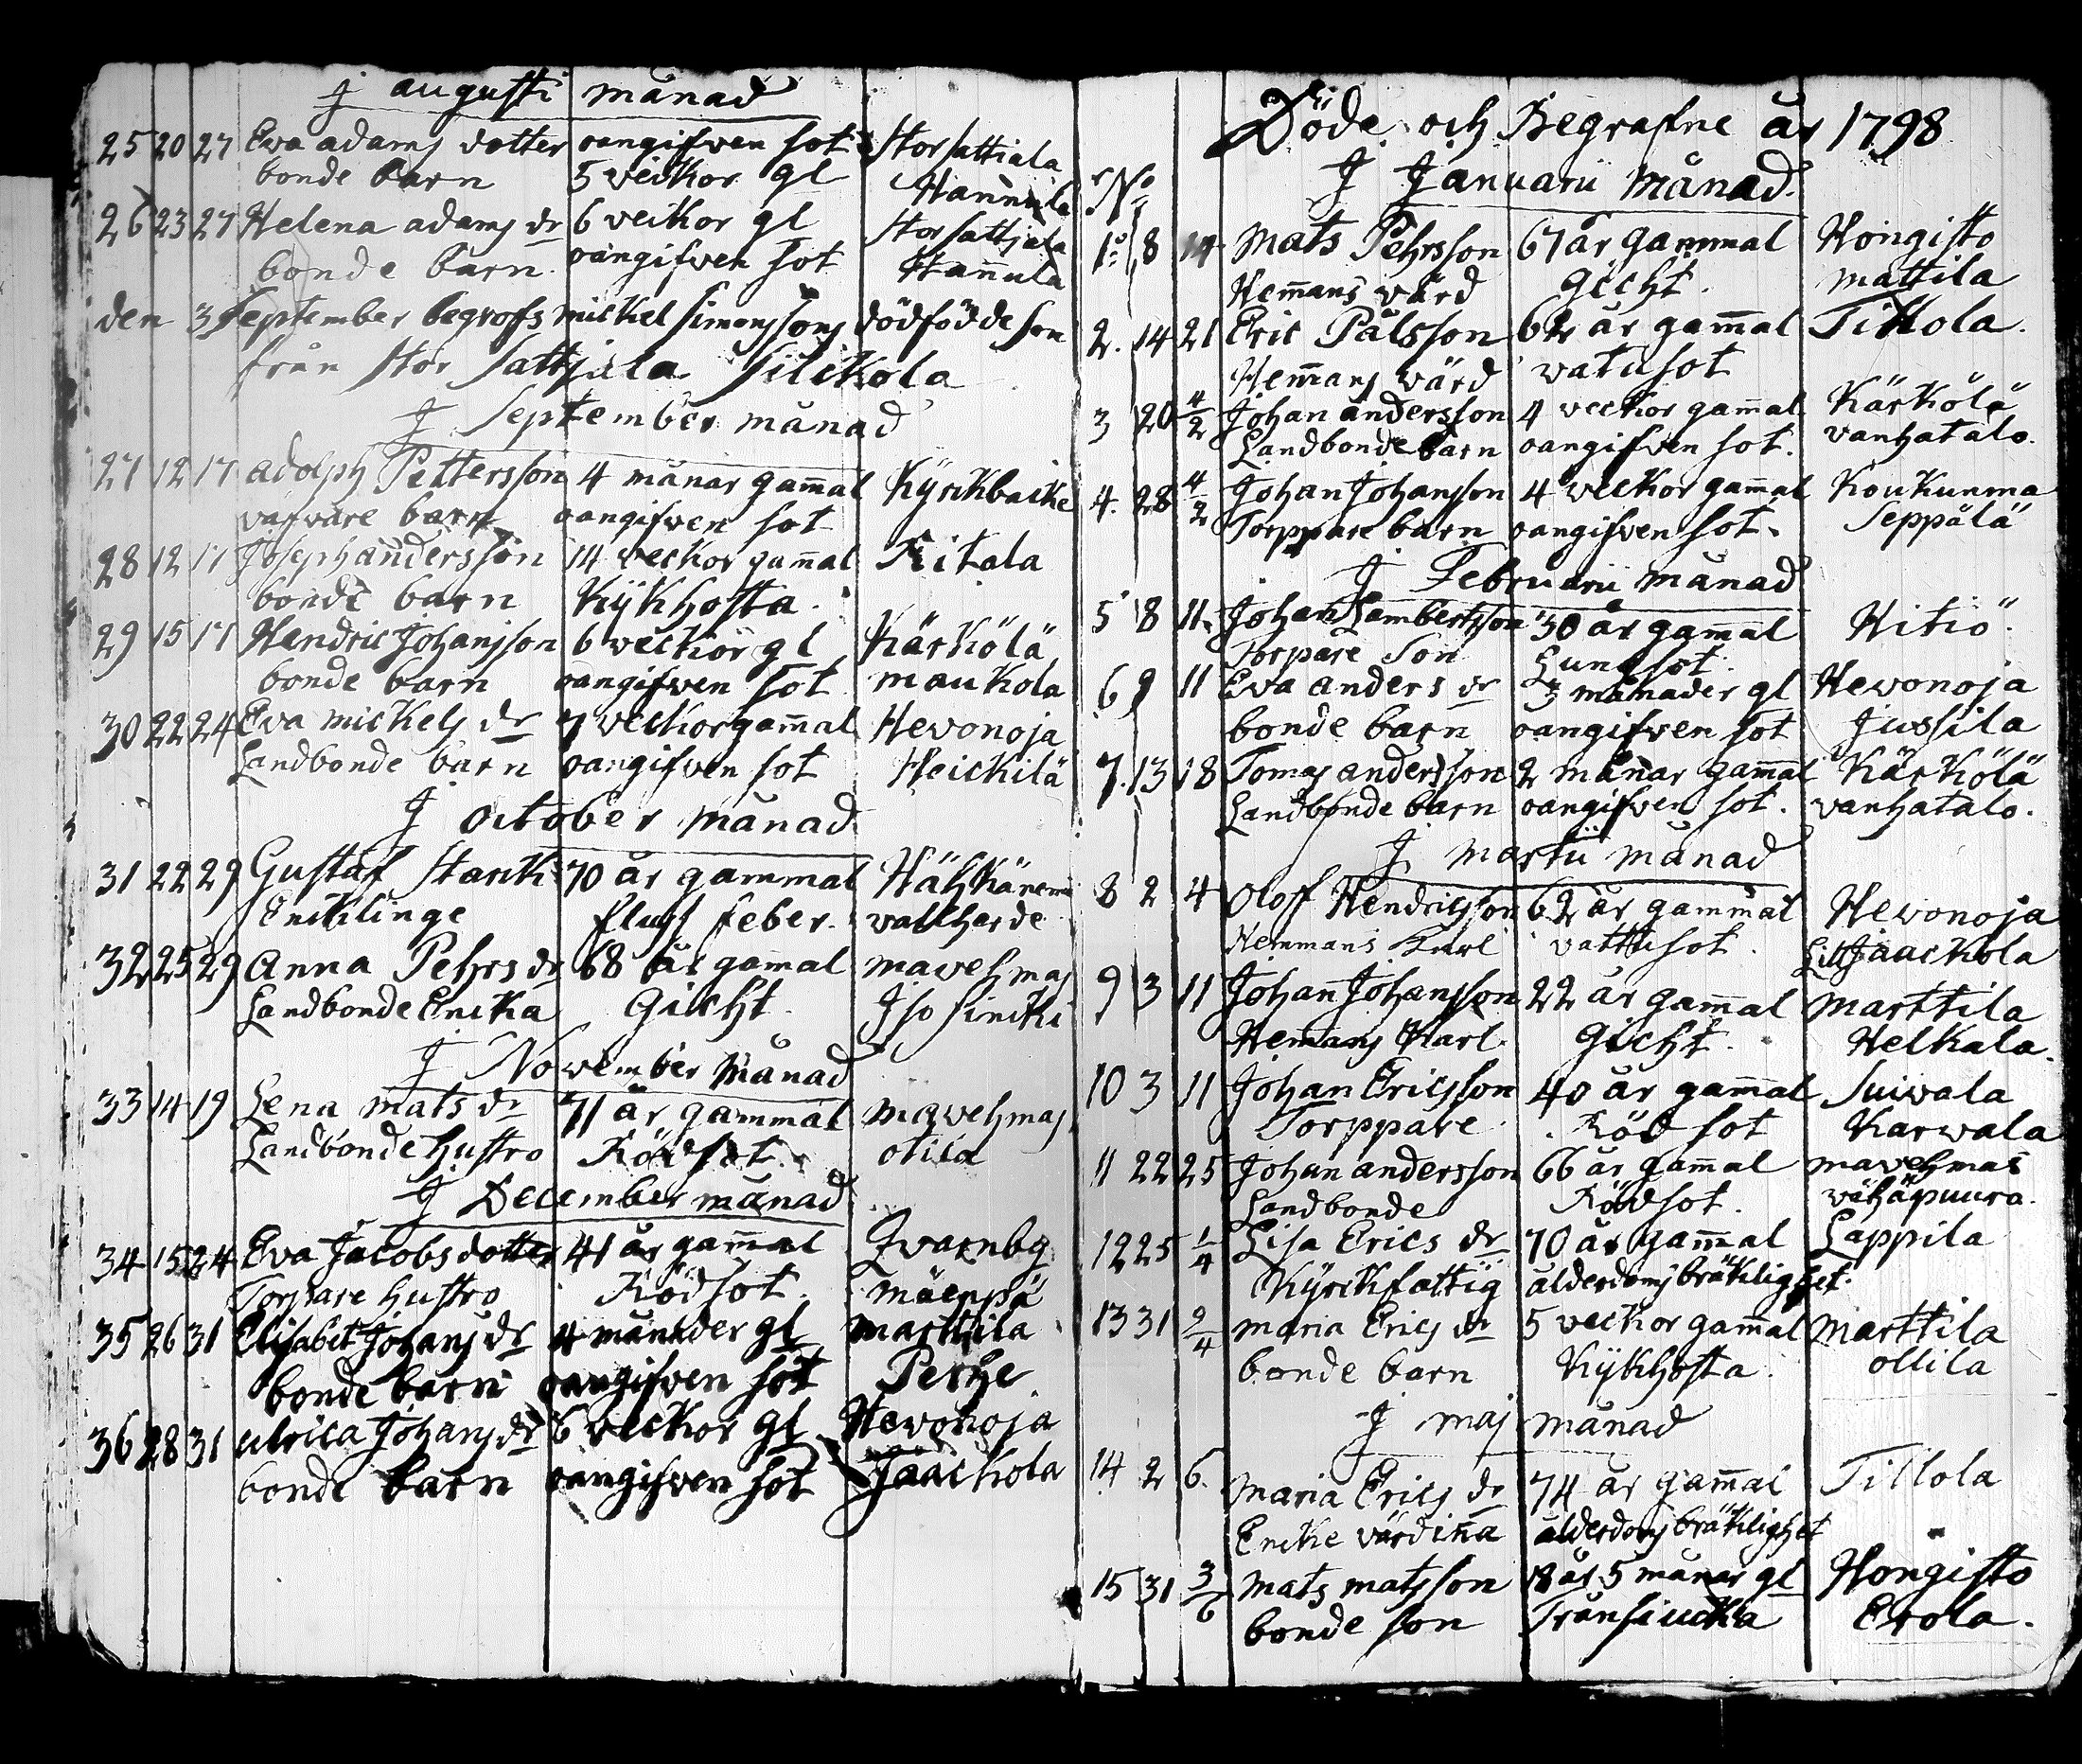 J augusti månad
25 20 27 Eva adams dotter oangifven sot Stor sattiala
bonde barn 5 veckor gl Hannula
26 23 27 Helena adams dr 6 veckor gl Stor sattjala
bonde barn oangifven sot Hannula
den 3 September begrofs mickel simonssons dödfödde son
från Stor Sattjala Silckola
J September månad
27 12 17 adolph Pettersson 4 månar gammal Kyrckbacke
barn oangifven sot
28 12 17 Joseph andersson 14 veckor gammal Ritala
bonde barn Kykhosta.
29 15 17 Hendric Johansson 6 veckor gl Kärkölä
bonde barn oangifven sot maukola
30 22 24 Eva mickels dr 7 veckor gammal Hevonoja
Landbonde barn oangifven sot Heickilä
J october månad
31 22 29 Gustaf Starck 70 år gammal
Encklinge fluss feber.
32 25 29 Anna Pehrs dr 68 år gammal mavehmas
Landbonde Encka Gicht. Iso sincki
J November månad
33 14 19 Lena mats dr 71 år gammal mavehmas
Landbonde hustro Rödsot. otila
J December månad
34 15 24 Eva Jacobs dotter 41 år gammal
Torpare hustro Rödsot.
35 26 31 Elisabet Johans dr 4 månader gl marttila
bonde barn oangifven sot
36 28 31 ulrica Johans dr 6 veckor gl Hevonoja
bonde barn oangifven sot Jaackola
Döde och Begrafne år 1798
J Januarii Månad.
No
1 8 14 Mats Pehrsson 67 år gammal Hongisto
Hemmans värd Gicht. mattila
2. 14 21 Eric Pålsson 62 år gammal Tillola.
Hemmans värd vatusot
3 20 4/2 Johan andersson 4 veckor gammal Kärkölä
Landbonde barn oangifven sot. vanhatalo.
4. 28 4/2 Johan Johansson 4 veckor gammal Koukunma
Torppare barn oangifven sot. Seppälä
J Februarii månad
5 8 11. Johan Lambertsson 30 år gammal Hitiö.
Torpare Son Lungsot.
6 9 11 Eva anders dr 3 månader gl Hevonoja
bonde barn oangifven sot Jussila
7. 13 18 Tomas andersson 2 månar gammal Kärkölä
Landbonde barn oangifven sot. vanhatalo.
J martii månad
8 2 4 Oloff Hendricsson 62 år gammal Hevonoja
Hemmans Karl vattusot. Lill Jaackola
9 3 11 Johan Johansson 22 år gammal marttila
Hemmans Karl. Gicht. Helkala.
10 3 11 Johan Ericsson 40 år gammal Suivala
Torppare. Röd sot Karwala
11 22 25 Johan andersson 66 år gammal mavehmas
Landbonde Rödsot. vähäpuura.
12 25 1/4 Lisa Erics dr 70 år gammal Lappila
Kyrckfattig ålderdoms bräcklighet.
13 31 2/4 maria Erics dr 5 veckor gammal marttila
bonde barn Kykhosta. ollila
J maj månad
14 2 6. maria Erics dr 74 år gammal Tillola
Encke värdinna ålderdoms bräcklighet
15 31 3/6 mats matsson 18 år 5 månar gl Hongisto
bonde son Trånsiucka Erola.